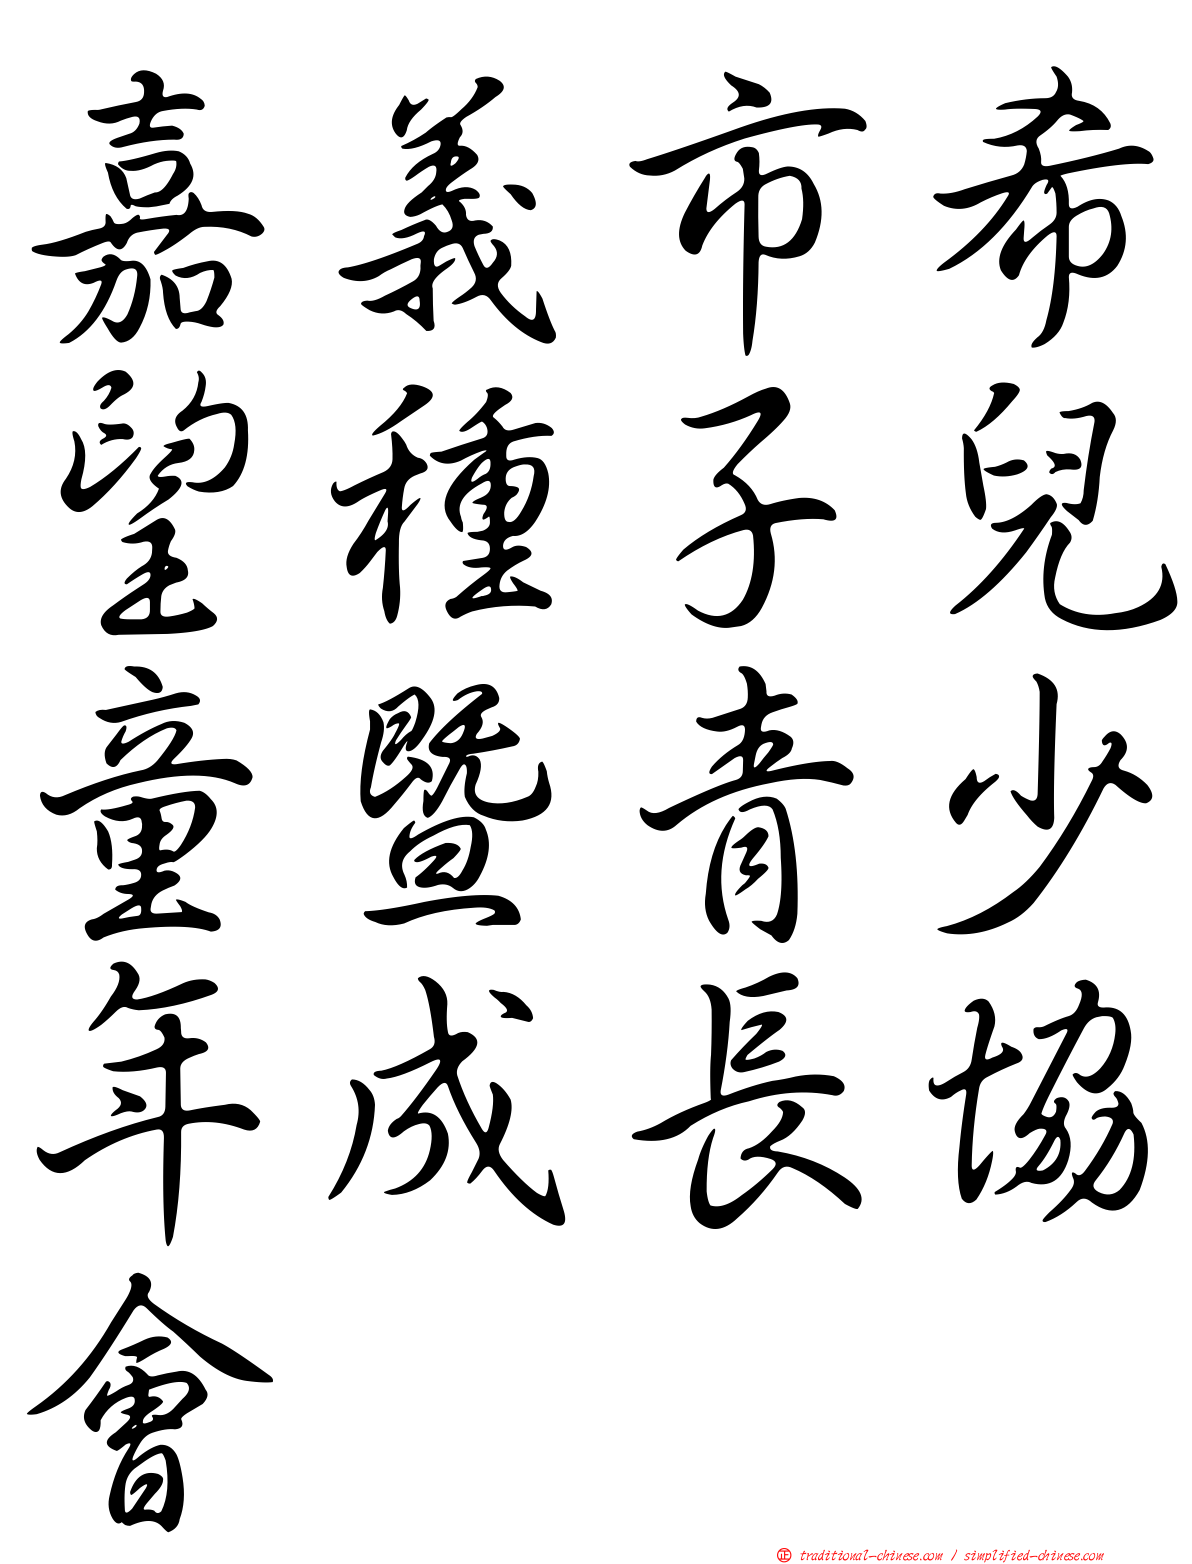 嘉義市希
望種子兒
童暨青少
年成長協
會
正 traditional-chinese.com / simplified-chinese.com